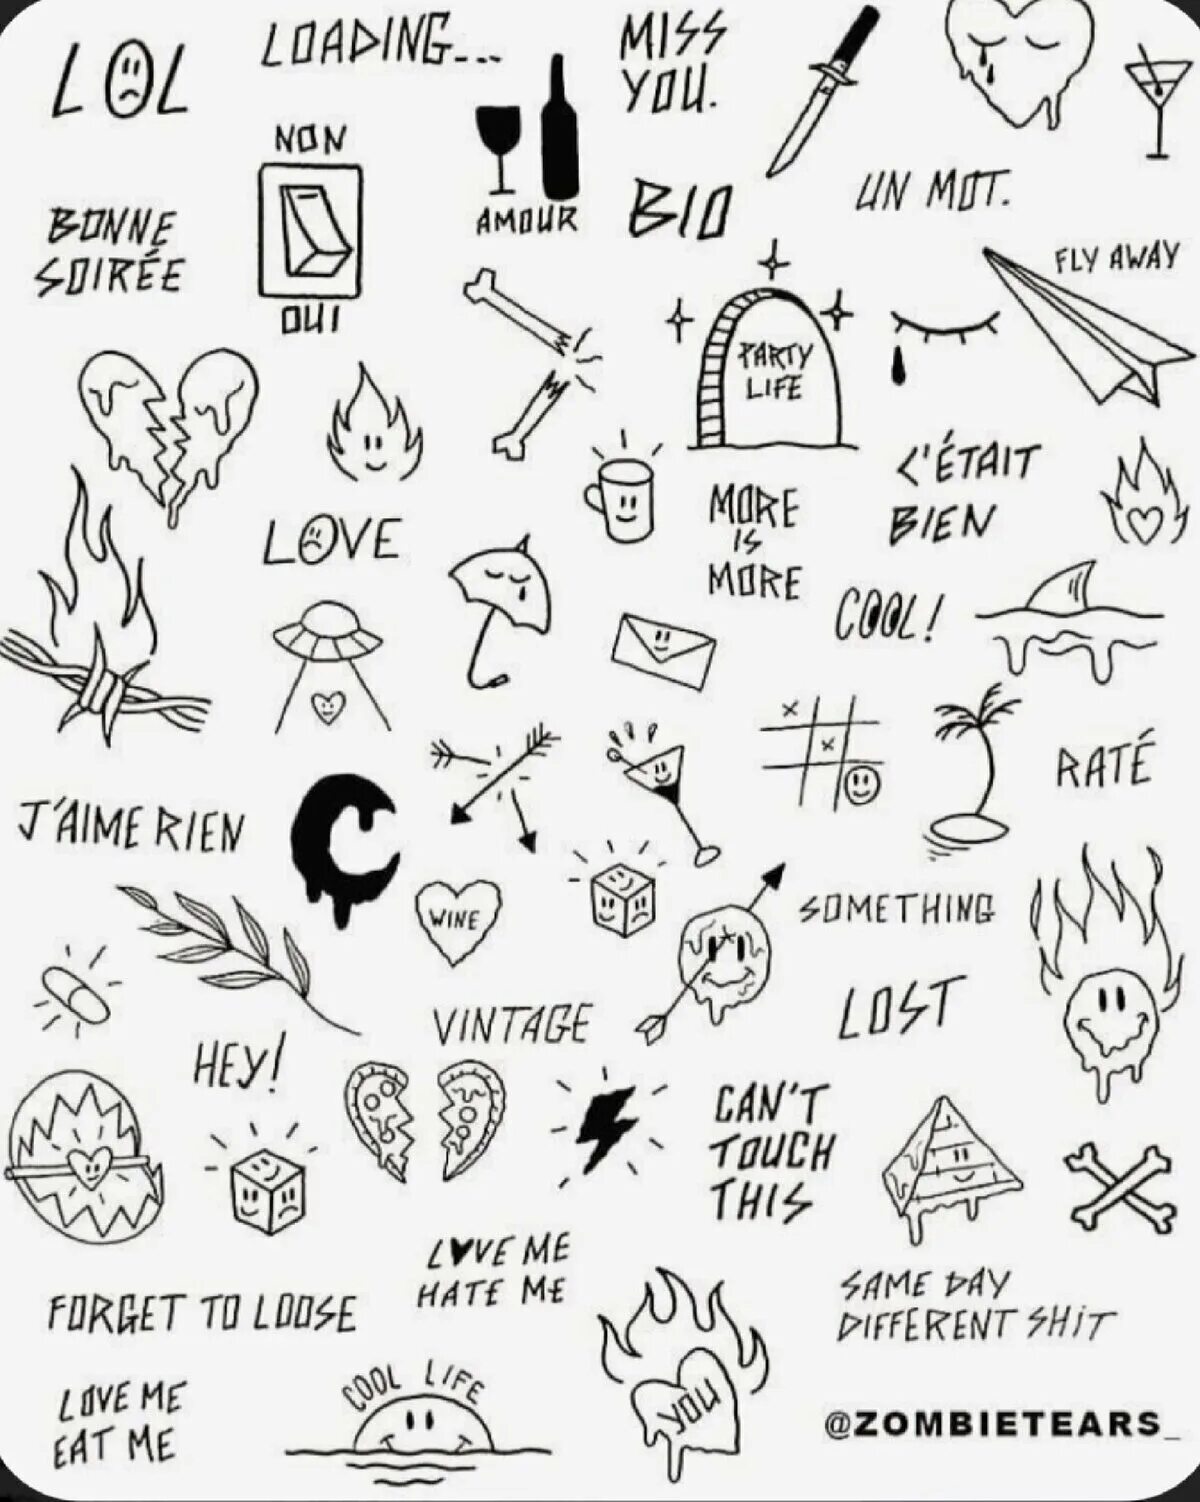 LOL
LOADING...
MISS
YOU.
NON
OUI
AMOUR
BIO
UN MOT.
BONNE
SOIRÉE
FLY AWAY
PARTY
LIFE
C'ÉTAIT
BIEN
MORE
IS
MORE
LOVE
COOL!
RATÉ
J'AIME RIEN
WINE
SOMETHING
LOST
VINTAGE
HEY!
CAN'T
TOUCH
THIS
LOVE ME
HATE ME
SAME DAY
DIFFERENT SHIT
FORGET TO LOOSE
LOVE ME
EAT ME
COOL LIFE
YOU
@ZOMBIETEARS_